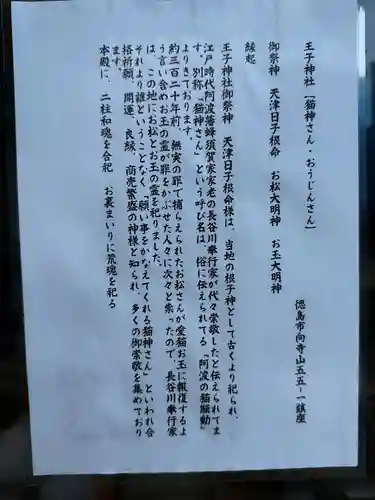 王子神社「猫神さん・おうじんさん」
徳島市向寺山五五ー一鎮座
御祭神　天津日子根命　お松大明神　お玉大明神
縁起
王子神社御祭神　天津日子根命様は、当地の根子神として古くより祀られ、
江戸時代阿波藩蜂須賀家家老の長谷川奉行家が代々崇敬したと伝えられてま
す。別称「猫神さん」という呼び名は、俗に伝えられてる「阿波の猫騒動」
よりきております。
約三百二十年前、無実の罪で捕らえられたお松さんが愛猫お玉に報復するよ
う言い含めお玉の霊が罪をかぶせた人々に次々と祟ったので、長谷川奉行家
は、この地にお松とお玉の霊を祀りました。
それより誰ということなく「願い事をかなえてくれる猫神さん」といわれ合
格祈願、開運、良縁、商売繁盛の神様と知られ、多くの御崇敬を集めており
ます。
本殿に、二柱和魂を合祀　お裏まいりに荒魂を祀る